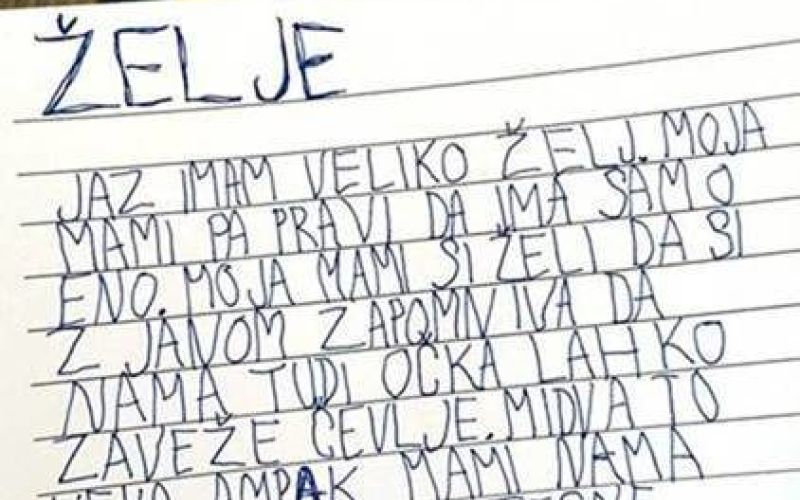 ŽELJE
JAZ IMAM VELIKO ŽELJ. MOJA
MAMI PA PRAVI DA IMA SAMO
ENO. MOJA MAMI SI ŽELI DA SI
Z JANOM ZAPOMNIVA DA
NAMA TUDI OČKA LAHKO
ZAVEŽE ČEVLJE. MIDVA TO
AMPAK MAMI NAMA